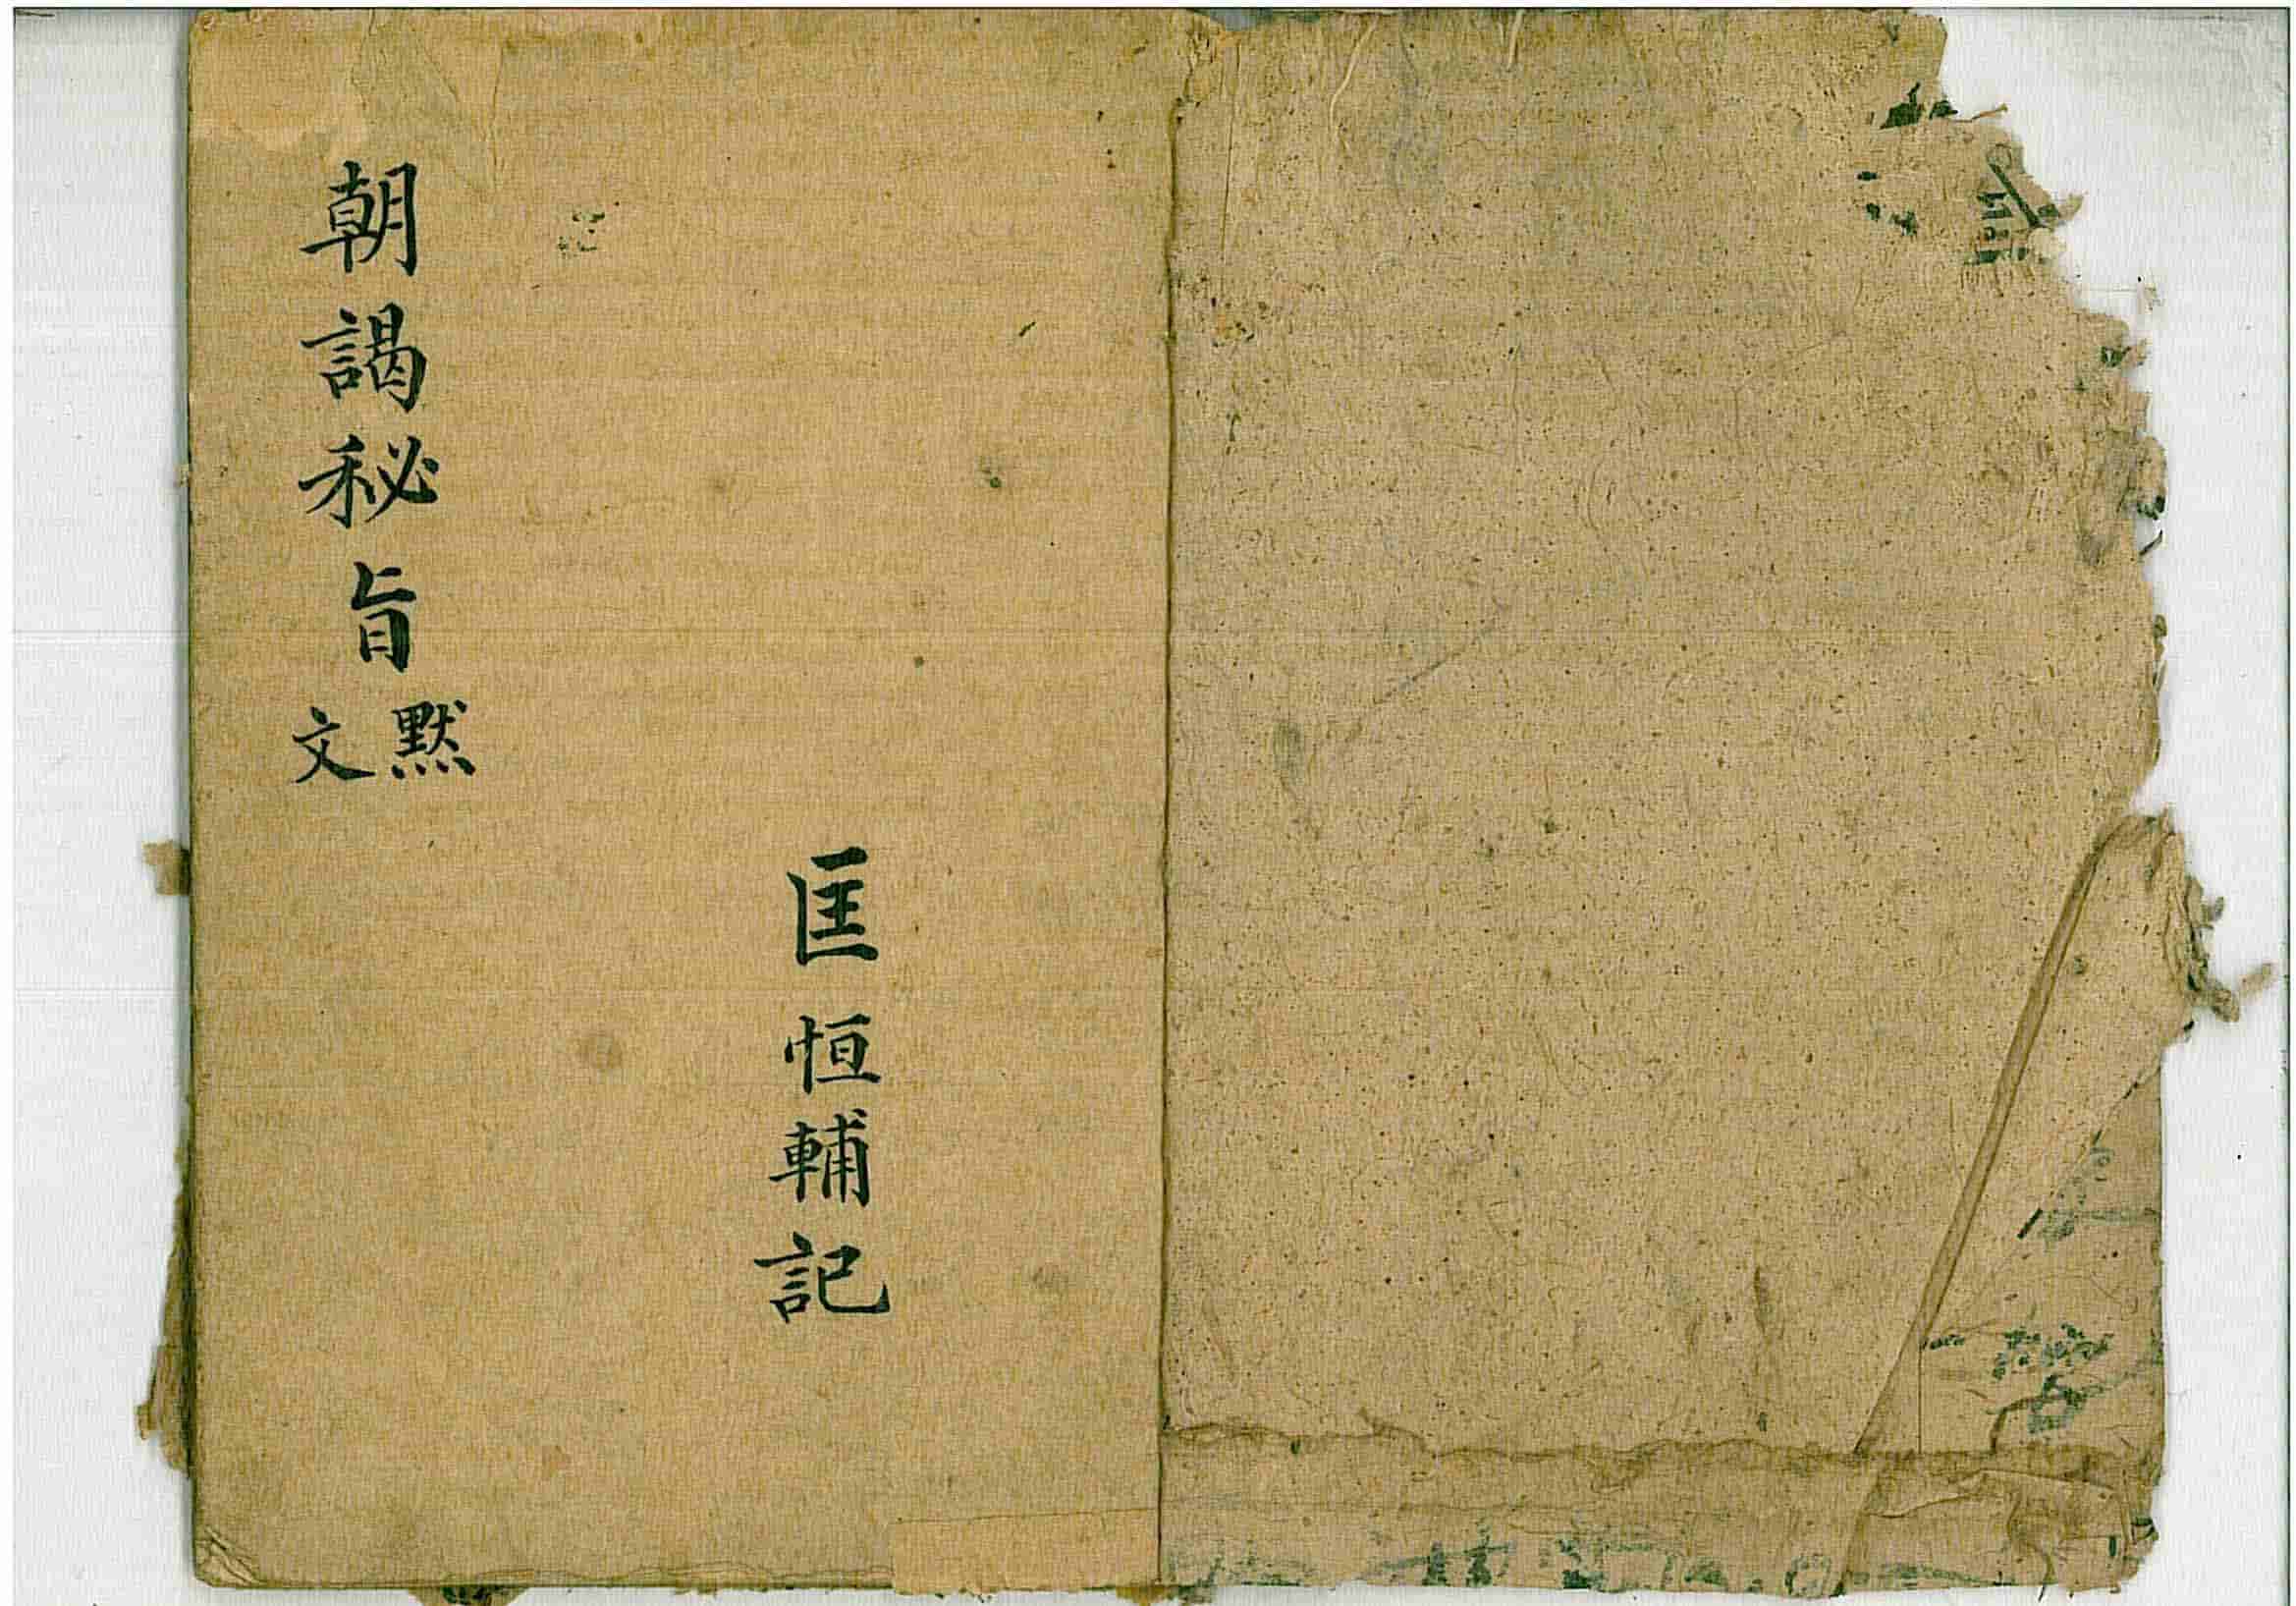 匡恒輔記
朝謁秘旨默文